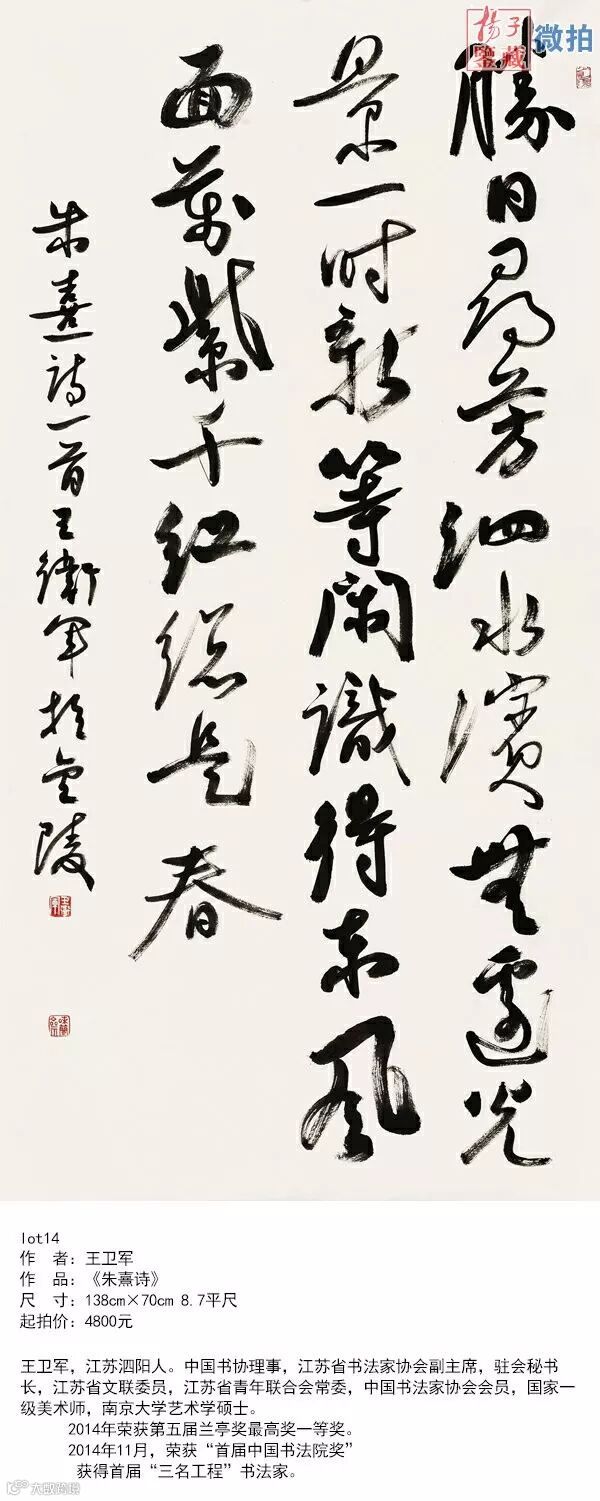 揚子
鑒藏
微拍
勝日尋芳泗水濱無邊光
景一时新等閑識得东風
面萬紫千红總是春
朱熹詩一首王衛军於金陵
lot14
作 者：王卫军
作 品：《朱熹诗》
尺 寸：138cm×70cm 8.7平尺
起拍价：4800元
王卫军，江苏泗阳人。中国书协理事，江苏省书法家协会副主席，驻会秘书
长，江苏省文联委员，江苏省青年联合会常委，中国书法家协会会员，国家一
级美术师，南京大学艺术学硕士。
2014年荣获第五届兰亭奖最高奖一等奖。
2014年11月，荣获“首届中国书法院奖”
获得首届“三名工程”书法家。
大欧跨境